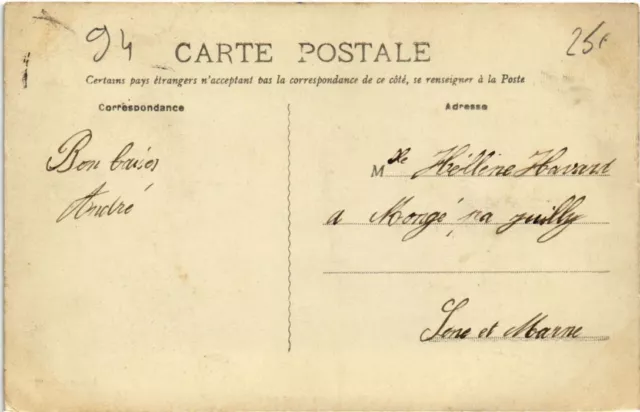 94
25f
CARTE POSTALE
Certains pays étrangers n'acceptant pas la correspondance de ce côté, se renseigner à la Poste
Correspondance
Adresse
Bon baiser
André
Mlle Héllène Havard
a Mongé pa juilly
Sene et Marne